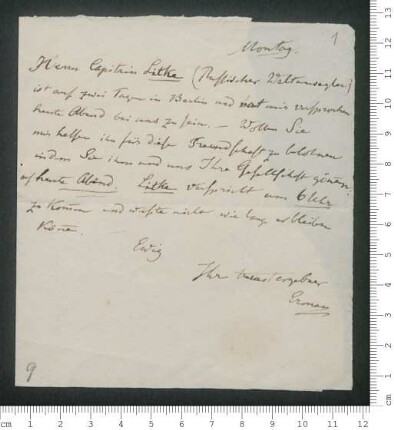 1
Montag.
Herrn Capitain Litke (Russischer Weltumsegler)
ist auf zwei Tage in Berlin und hat mir versprochen
heute Abend bei uns zu sein. – Wollen Sie
mir helfen ihn für diese Freundschaft zu belohnen
indem Sie ihm und uns Ihre Gesellschaft gönnen
auf heute Abend. Litke verspricht um 6 Uhr
zu kommen und wußte nicht wie lange er bleiben
könne.
Ewig
Ihr treust ergebner
Erman
9
cm 1 2 3 4 5 6 7 8 9 10 11 12
cm 1 2 3 4 5 6 7 8 9 10 11 12 13